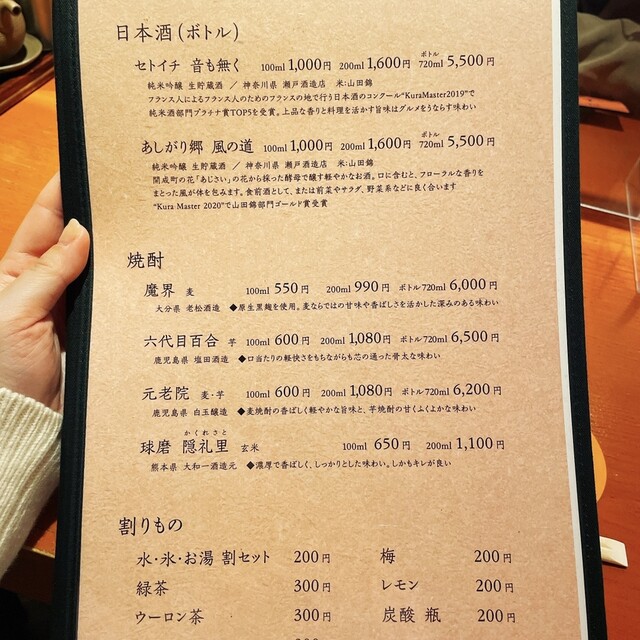 日本酒(ボトル)
セトイチ 音も無く 100ml 1,000円 200ml 1,600円 ボトル 720ml 5,500円
純米吟醸 生貯蔵酒 / 神奈川県 瀬戸酒造店 米:山田錦
フランス人によるフランス人のためのフランスの地で行う日本酒のコンクール“KuraMaster2019”で
純米酒部門プラチナ賞TOP5を受賞。上品な香りと料理を活かす旨味はグルメをうならす味わい
あしがり郷 風の道 100ml 1,000円 200ml 1,600円 ボトル 720ml 5,500円
純米吟醸 生貯蔵酒 / 神奈川県 瀬戸酒造店 米:山田錦
開成町の花「あじさい」の花から採った酵母で醸す軽やかなお酒。口に含むと、フローラルな香りを
まとった風が体を包みます。食前酒として、または前菜やサラダ、野菜系などに良く合います
“Kura Master 2020”で山田錦部門ゴールド賞受賞
焼酎
魔界 麦 100ml 550円 200ml 990円 ボトル720ml 6,000円
大分県 老松酒造 ◆原生黒麹を使用。麦ならではの甘味や香ばしさを活かした深みのある味わい
六代目百合 芋 100ml 600円 200ml 1,080円 ボトル720ml 6,500円
鹿児島県 塩田酒造 ◆口当たりの軽快さをもちながらも芯の通った骨太な味わい
元老院 麦・芋 100ml 600円 200ml 1,080円 ボトル720ml 6,200円
鹿児島県 白玉醸造 ◆麦焼酎の香ばしく軽やかな旨味と、芋焼酎の甘くふくよかな味わい
かくれざと
球磨 隠礼里 玄米 100ml 650円 200ml 1,100円
熊本県 大和一酒造元 ◆濃厚で香ばしく、しっかりとした味わい。しかもキレが良い
割りもの
水・氷・お湯 割セット 200円 梅 200円
緑茶 300円 レモン 200円
ウーロン茶 300円 炭酸 瓶 200円